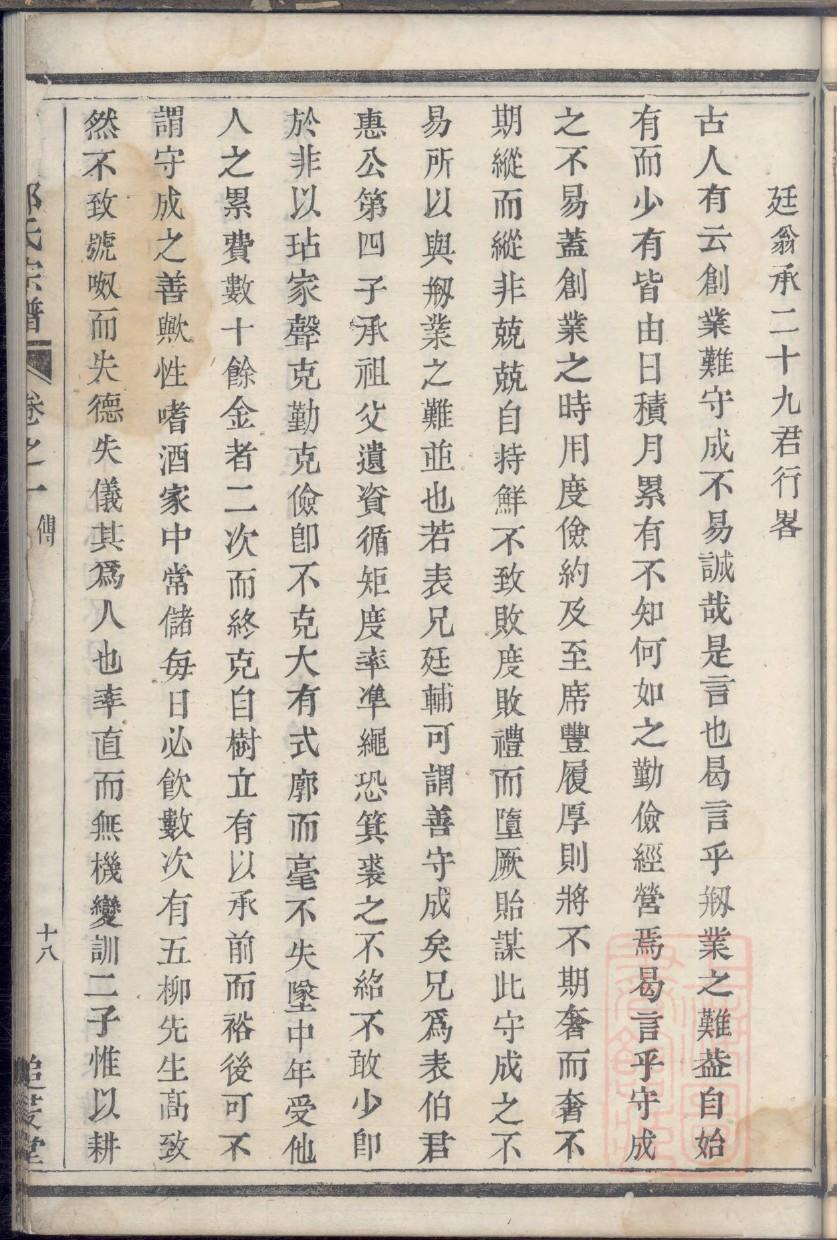 廷翁承二十九君行畧
古人有云創業難守成不易誠哉是言也曷言乎剏業之難葢自始
有而少有皆由日積月累有不知何如之勤儉經營焉曷言乎守成
之不易蓋創業之時用度儉約及至席豐履厚則將不期奢而奢不
期縱而縱非兢兢自持鮮不致敗度敗禮而墮厥貽謀此守成之不
易所以與剏業之難並也若表兄廷輔可謂善守成矣兄爲表伯君
惠公第四子承祖父遺資循矩度率準繩恐箕裘之不紹不敢少卽
於非以玷家聲克勤克儉卽不克大有式廓而毫不失墜中年受他
人之累費數十餘金者二次而終克自樹立有以承前而裕後可不
謂守成之善歟性嗜酒家中常儲每日必飲數次有五柳先生高致
然不致號呶而失德失儀其爲人也率直而無機變訓二子惟以耕
氏宗譜 卷之一 傳 十八 追遠堂